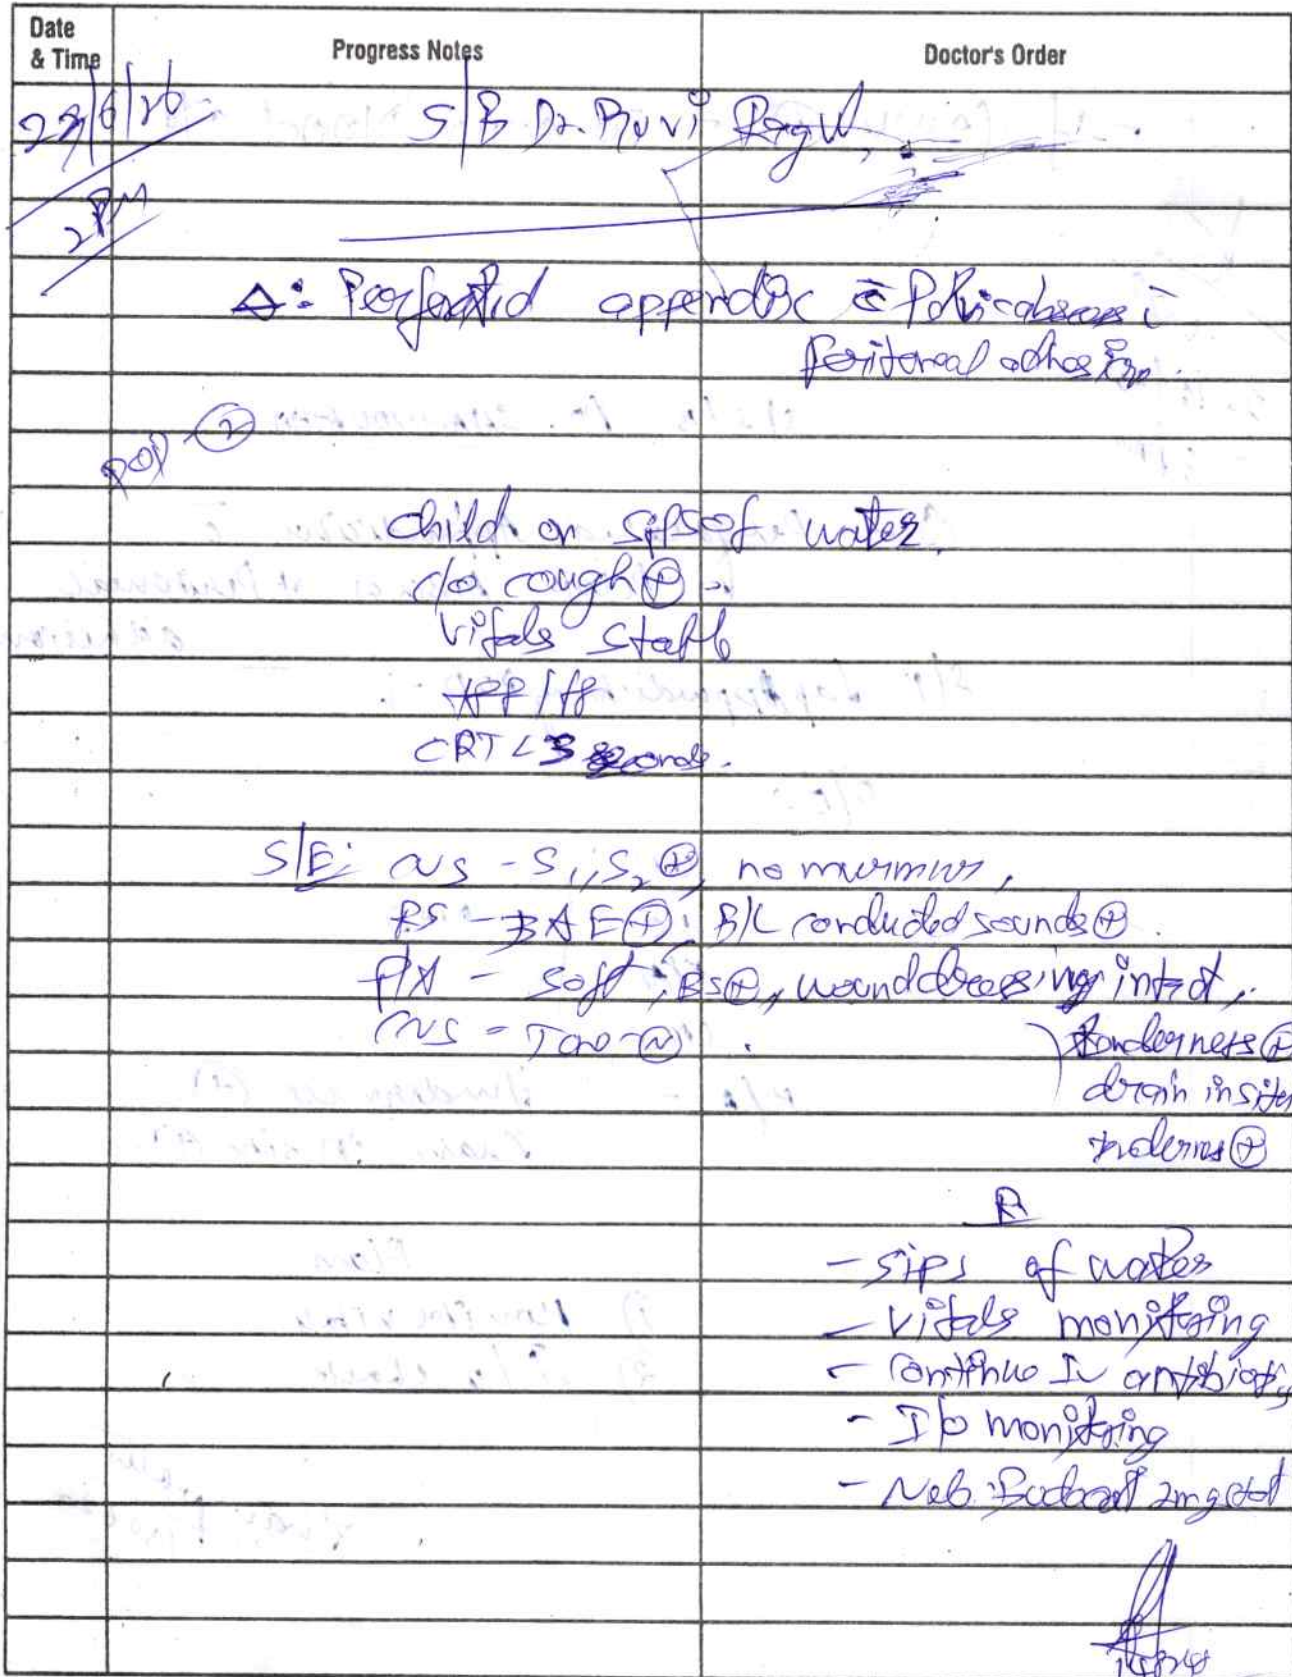 Date & Time
Progress Notes
Doctor's Order
23/6/26
S/B Dr.
2 PM
Δ: Perforated appendix c̄ Pelvic abscess c̄
Peritoneal adhesion.
POD ②
Child on sips of water.
c/o cough ⊕
Vitals stable
CRT < 3 seconds.
S/E: CVS - S1, S2 ⊕, no murmur,
RS - BAE ⊕, B/L conducted sounds ⊕.
P/A - soft, BS ⊕, wound dressing intact,
CNS - Tone - Ⓝ
Tenderness ⊕
drain insitu
℞
- Sips of water
- Vitals monitoring
- Continue IV antibiotics
- I/O monitoring
- Neb. Budecort 2mg stat